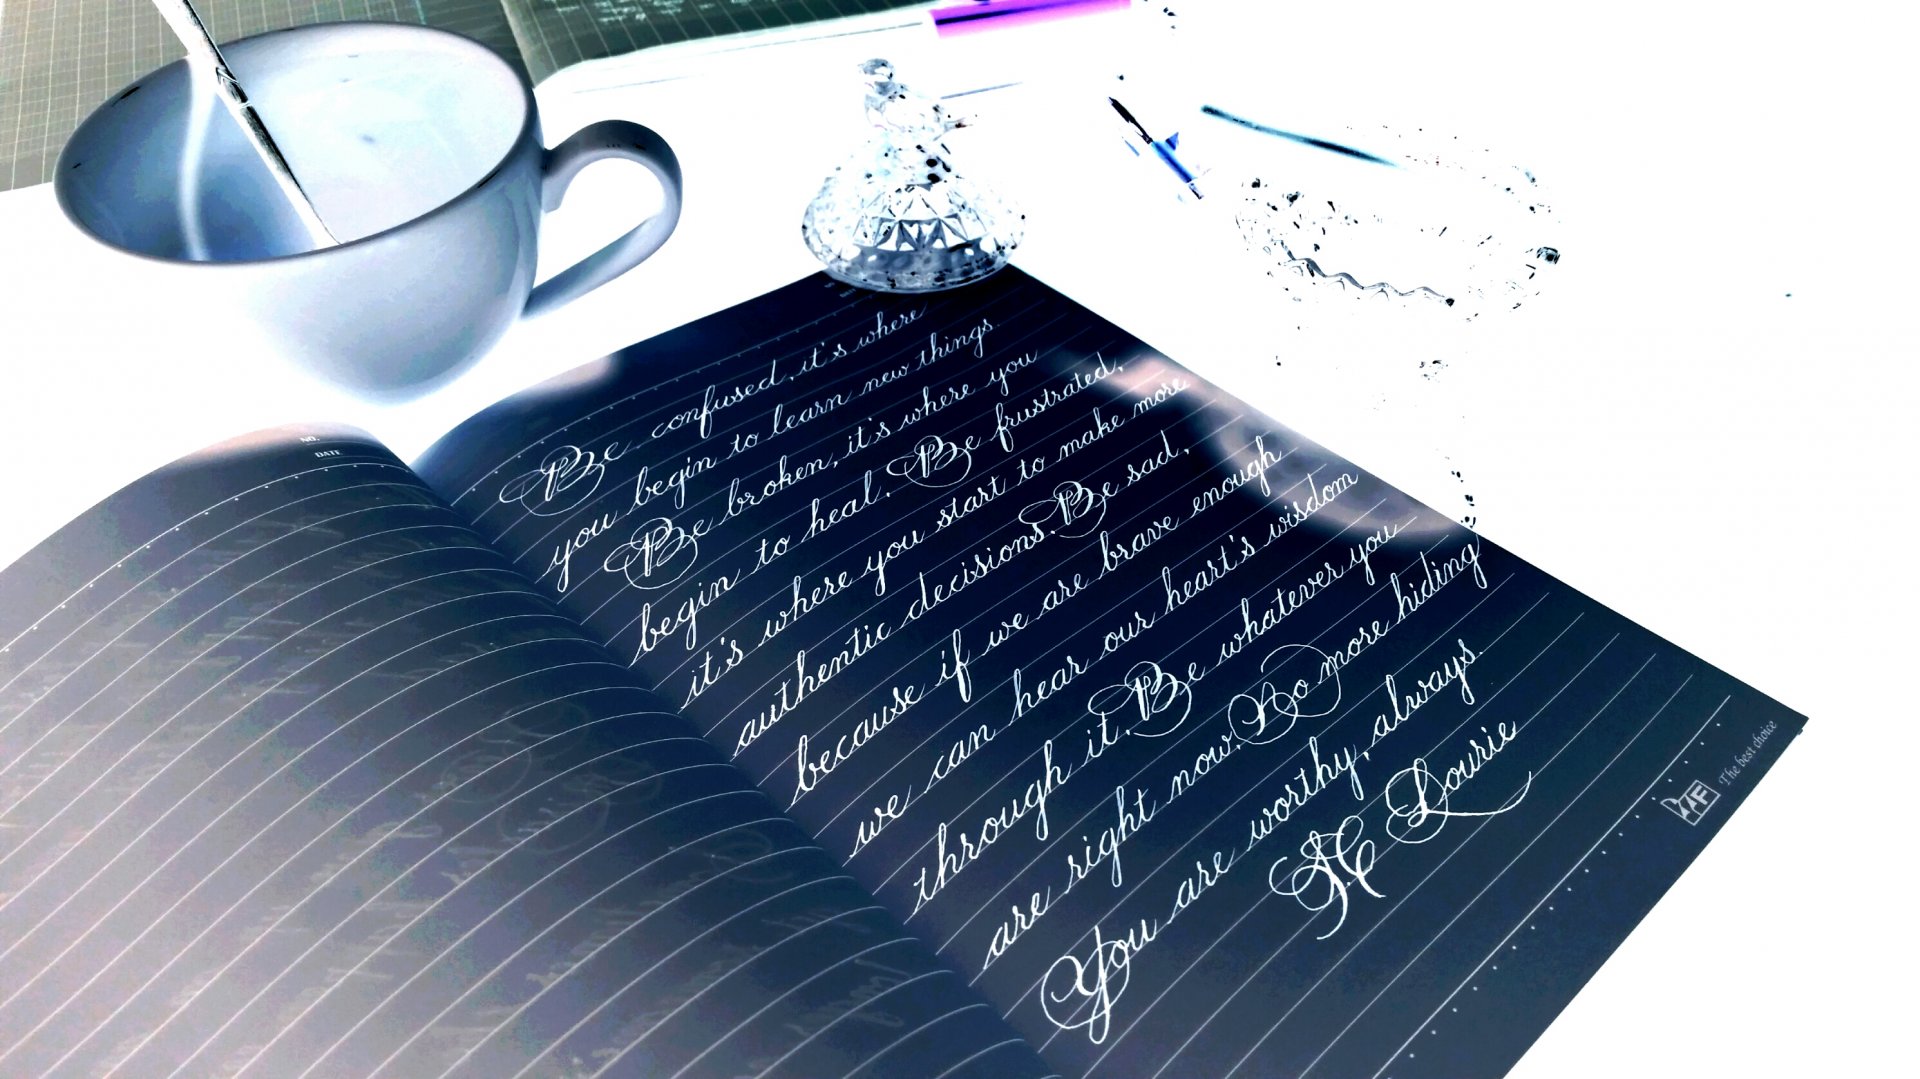 NO.
DATE
Be confused, it's where
you begin to learn new things.
Be broken, it's where you
begin to heal. Be frustrated,
it's where you start to make more
authentic decisions. Be sad,
because if we are brave enough
we can hear our heart's wisdom
through it. Be whatever you
are right now. No more hiding
You are worthy, always.
SC Lourie
The best choice